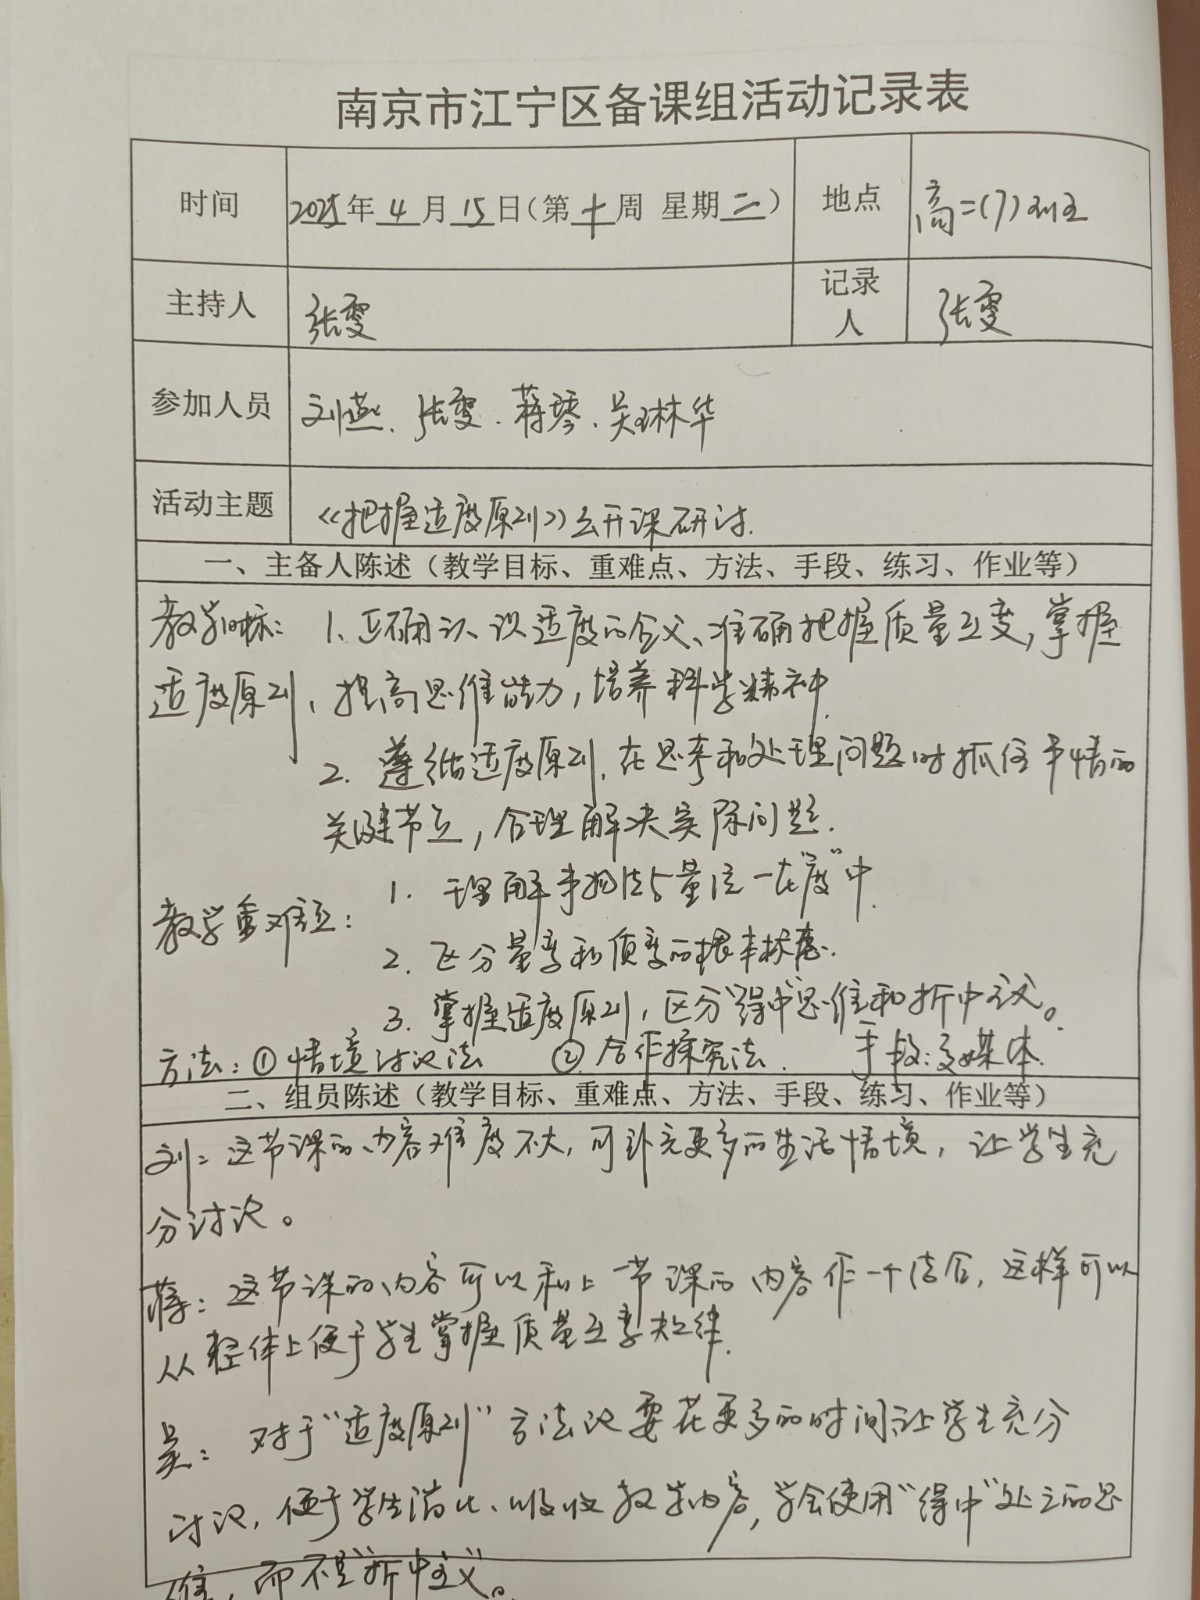 南京市江宁区备课组活动记录表
时间 2025年4月15日(第十周 星期二) 地点 高二(7)班
主持人 张雯 记录人 张雯
参加人员 刘燕、张雯、蒋琴、吴琳华
活动主题 《把握适度原则》公开课研讨.
一、主备人陈述（教学目标、重难点、方法、手段、练习、作业等）
教学目标: 1、正确认识适度的含义、准确把握质量互变,掌握
适度原则、提高思维能力,培养科学精神.
2. 遵循适度原则,在思考和处理问题时抓住事情的
关键节点,合理解决实际问题.
教学重难点: 1. 理解事物质与量统一在"度"中
2. 区分量变和质变的根本标志.
3. 掌握适度原则,区分"得中"思维和折中主义。
方法:①情境讨论法 ②合作探究法. 手段:多媒体.
二、组员陈述（教学目标、重难点、方法、手段、练习、作业等）
刘: 这节课的内容难度不大,可补充更多的生活情境,让学生充
分讨论。
蒋: 这节课的内容可以和上一节课的内容作一个结合,这样可以
从整体上便于学生掌握质量互变规律.
吴: 对于"适度原则"方法论要花更多的时间让学生充分
讨论,便于学生消化、吸收教学内容,学会使用"得中"处之的思
维,而不是"折中主义"。